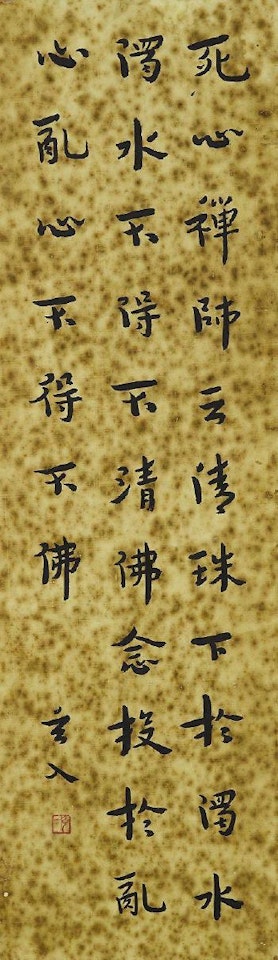 死心禪師云清珠下於濁水
濁水不得不清佛念投於亂
心亂心不得不佛
音入